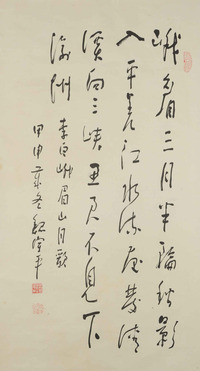 峨眉山月半輪秋影
入平羌江水流夜發清
溪向三峽思君不見下
渝州
李白峨眉山月歌
甲申歲冬魏宇平